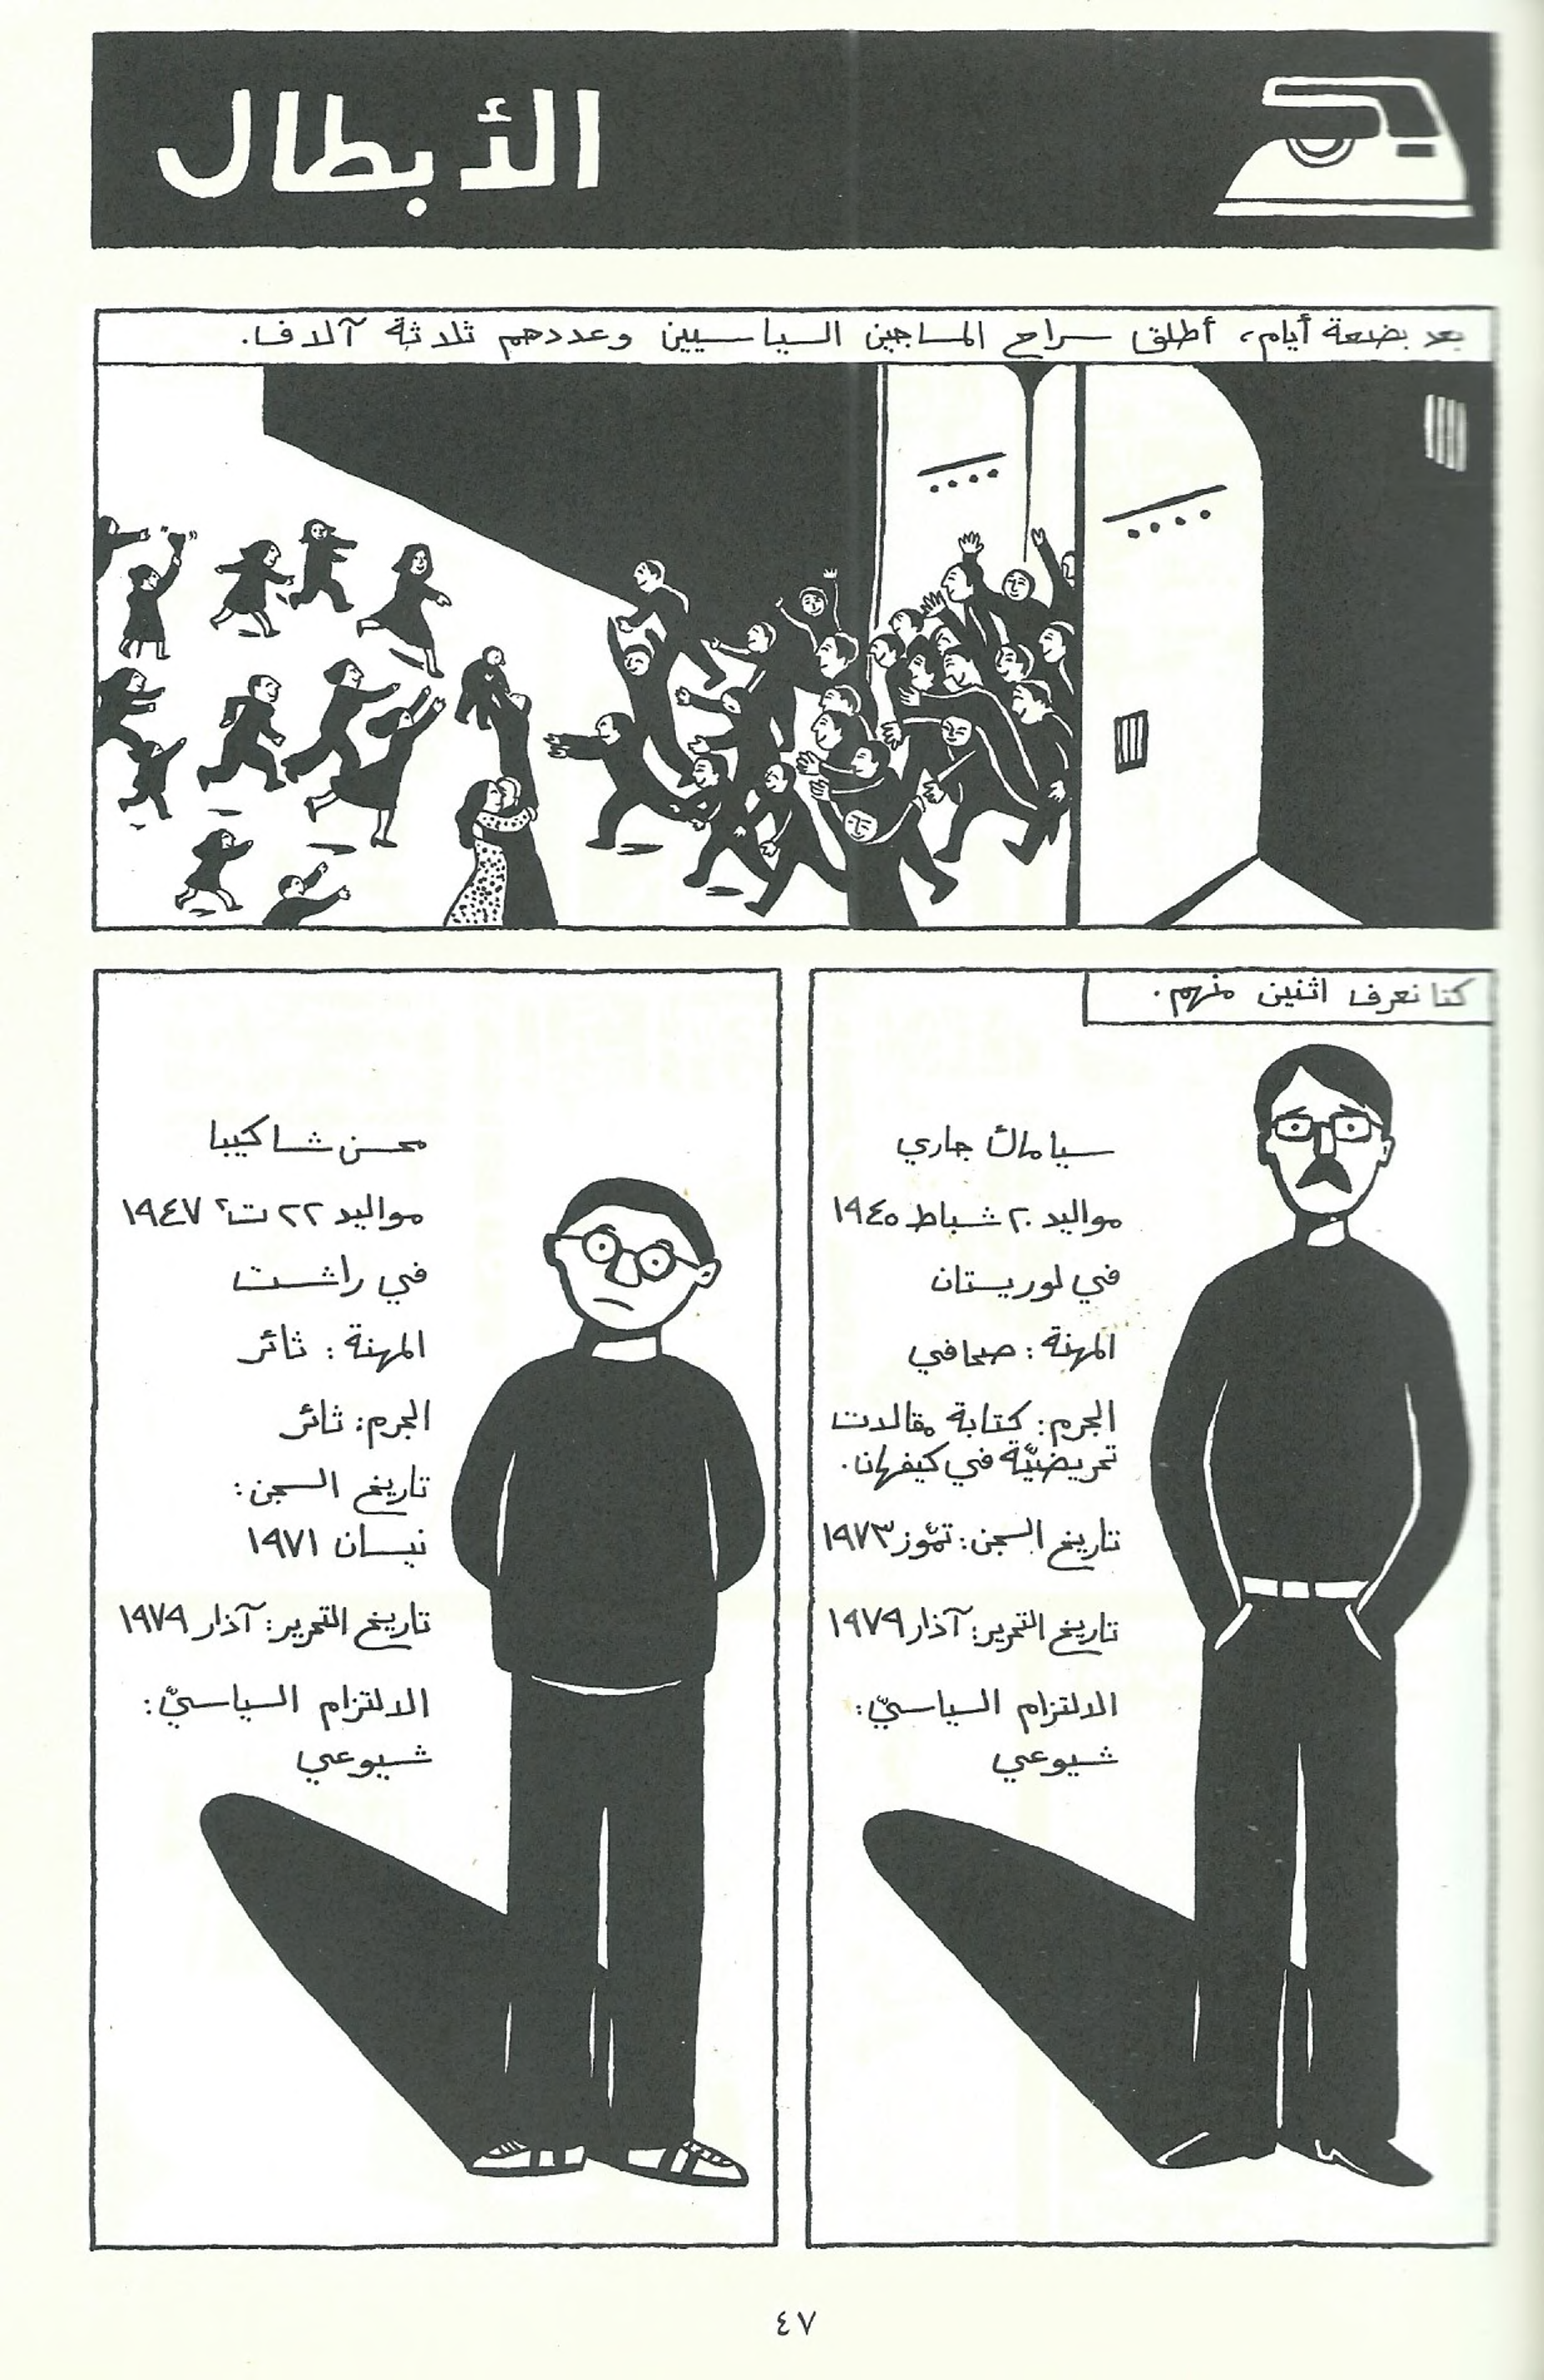 الأبطال
بعد بضعة أيام، أطلق سراح المساجين السياسيين وعددهم ثلاثة آلاف.
كنا نعرف اثنين منهم.
سياماك جاري
مواليد ٢٠ شباط ١٩٤٥
في لوريستان
المهنة: صحافي
الجرم: كتابة مقالات
تحريضيّة في كيفهان.
تاريخ السجن: تمّوز ١٩٧٣
تاريخ التحرير: آذار ١٩٧٩
الالتزام السياسيّ:
شيوعي
محسن شاكيبا
مواليد ٢٢ ت٢ ١٩٤٧
في راشت
المهنة: ثائر
الجرم: ثائر
تاريخ السجن:
نيسان ١٩٧١
تاريخ التحرير: آذار ١٩٧٩
الالتزام السياسيّ:
شيوعي
٤٧